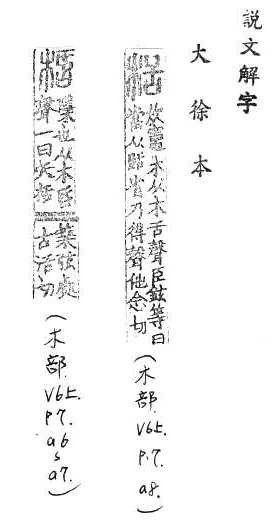 説文解字
大徐本
栝
炊竈木从木舌聲臣鉉等曰
當从甛省乃得聲他念切
(木部.V6上.P.7.a8.)
桰
檃也从木𠯑
聲一曰矢桰
築弦處
古活切
(木部.V6上.P7.a6s a7.)